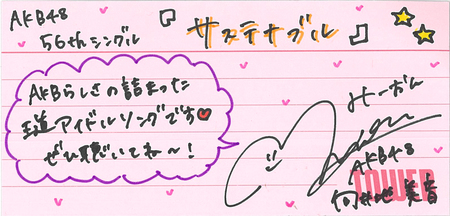 AKB48
56thシングル
サステナブル
AKBらしさの詰まった
王道アイドルソングです
ぜひ聴いてね〜!
みーおん
AKB48
向井地美音
TOWER